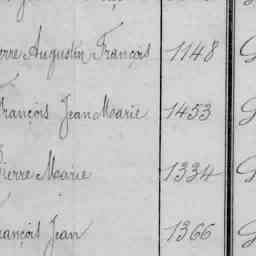 erre Augustin François 1148
François Jean Marie 1453
Pierre Marie 1334
rançois Jean 1366